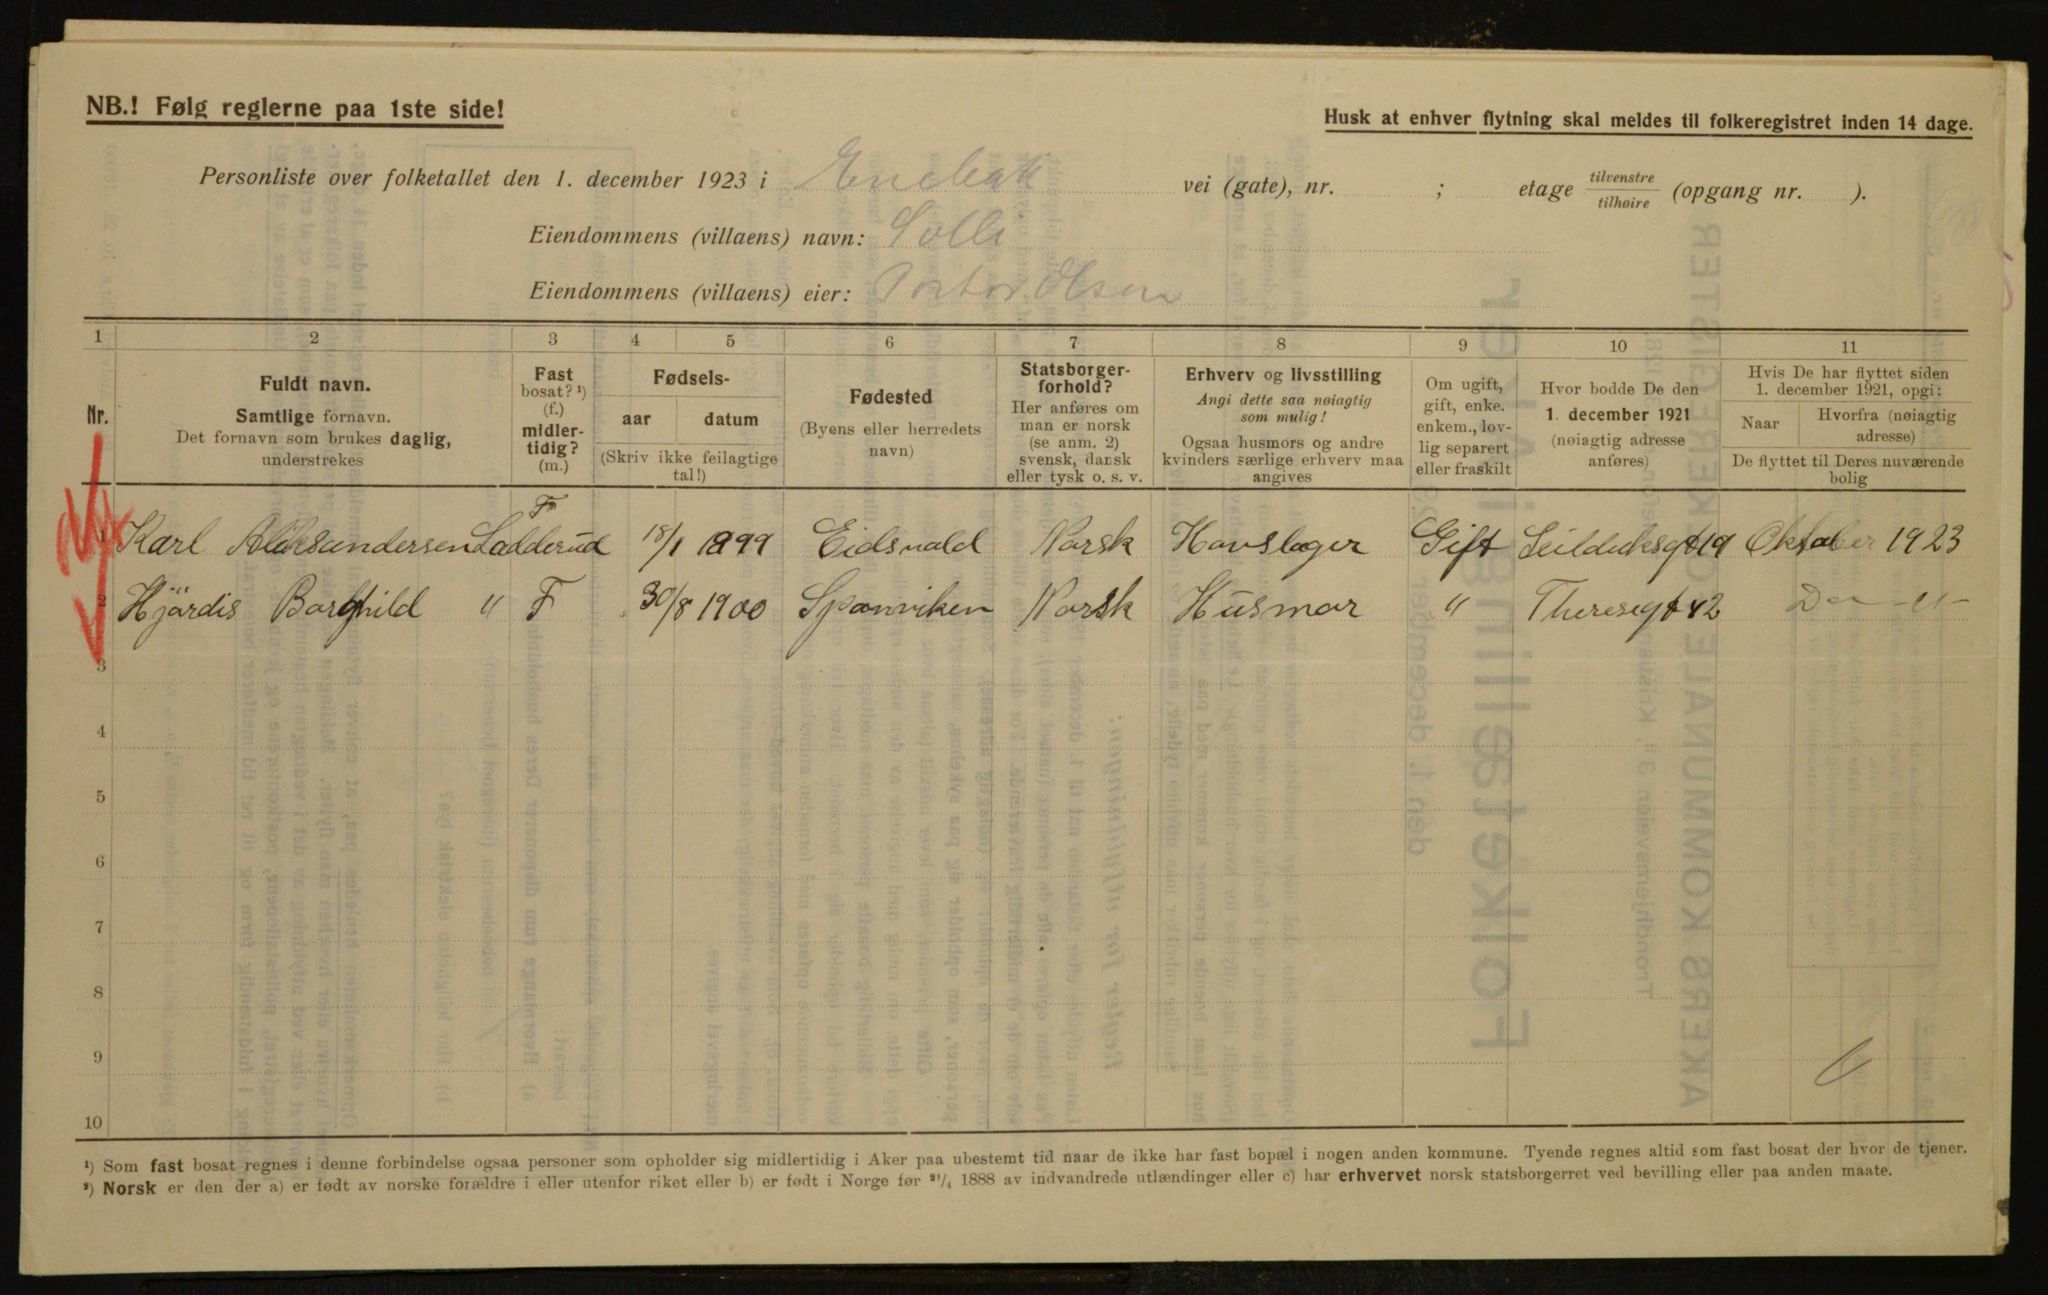 NB.! Følg reglerne paa 1ste side!
Husk at enhver flytning skal meldes til folkeregistret inden 14 dage.
Personliste over folketallet den 1. december 1923 i Enebak vei (gate), nr. ; etage tilvenstre / tilhøire (opgang nr. ).
Eiendommens (villaens) navn: Solli
Eiendommens (villaens) eier: Pastor Olsen
1 2 3 4 5 6 7 8 9 10 11
Nr.
Fuldt navn.
Samtlige fornavn.
Det fornavn som brukes daglig,
understrekes
Fast
bosat? ¹)
(f.)
midler-
tidig?
(m.)
Fødsels-
aar datum
(Skriv ikke feilagtige
tal!)
Fødested
(Byens eller herredets
navn)
Statsborger-
forhold?
Her anføres om
man er norsk
(se anm. 2)
svensk, dansk
eller tysk o. s. v.
Erhverv og livsstilling
Angi dette saa nøiagtig
som mulig!
Ogsaa husmors og andre
kvinders særlige erhverv maa
angives
Om ugift,
gift, enke.
enkem., lov-
lig separert
eller fraskilt
Hvor bodde De den
1. december 1921
(nøiagtig adresse
anføres)
Hvis De har flyttet siden
1. december 1921, opgi:
Naar Hvorfra (nøiagtig
adresse)
De flyttet til Deres nuværende
bolig
1 Karl Aleksandersen Ladderud F 18/1 1899 Eidsvold Norsk Hovslager Gift Seilduksgt 19 Oktober 1923
2 Hjørdis Borghild " F 30/8 1900 Sponviken Norsk Husmor " Theresegt 42 Do — " —
3
4
5
6
7
8
9
10
¹) Som fast bosat regnes i denne forbindelse ogsaa personer som opholder sig midlertidig i Aker paa ubestemt tid naar de ikke har fast bopæl i nogen anden kommune. Tyende regnes altid som fast bosat der hvor de tjener.
²) Norsk er den der a) er født av norske forældre i eller utenfor riket eller b) er født i Norge før ²¹/₄ 1888 av indvandrede utlændinger eller c) har erhvervet norsk statsborgerret ved bevilling eller paa anden maate.